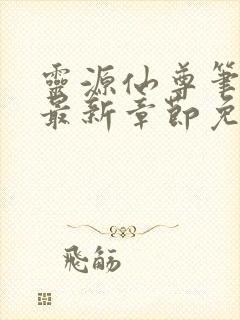 靈源仙尊筆
最新章節免
飛觞